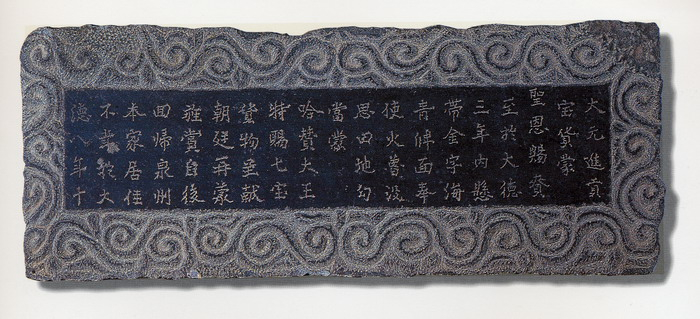 大元進貢
宝貨蒙
聖恩賜賚
至於大德
三年内懸
帶金字海
青牌面奉
使火魯没
思田地勾
當蒙
哈贊大王
特賜七宝
貨物呈献
朝廷再蒙
旌賞自後
回歸泉州
本家居住
不幸於大
德八年十